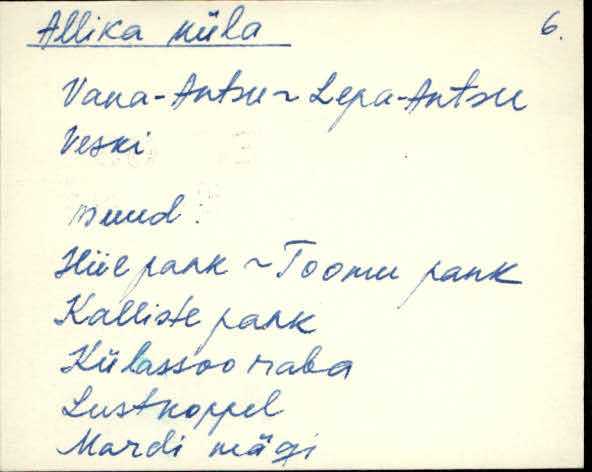 Allika küla 6.
Vana-Antsu ~ Lepa-Antsu
Veski
muud:
Hiie pank ~ Toomu pank
Kalliste pank
Külassoo raba
Lustkoppel
Mardi mägi